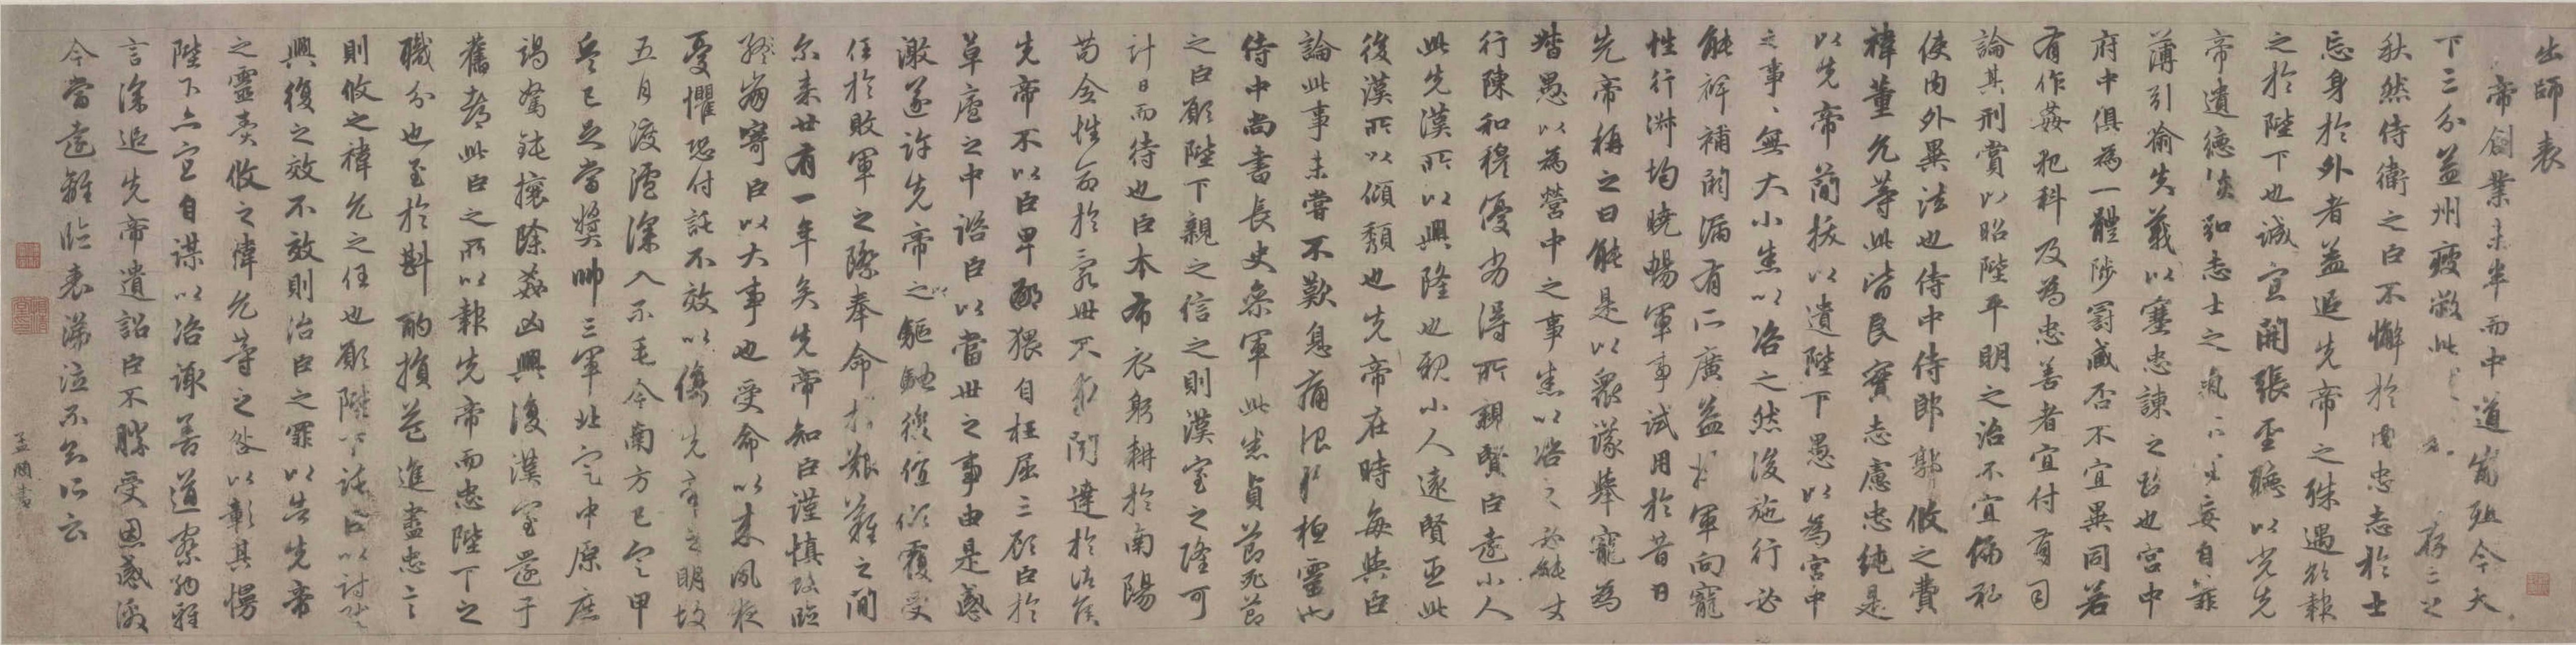 出師表
帝創業未半而中道崩殂今天
下三分益州疲敝此存亡之
秋然侍衛之臣不懈於內忠志於士
忘身於外者益追先帝之殊遇欲報
之於陛下也誠宜開張聖聽以光先
帝遺德恢弘志士之氣不宜妄自菲
薄引喻失義以塞忠諫之路也宮中
府中俱為一體陟罰臧否不宜異同若
有作姦犯科及為忠善者宜付有司
論其刑賞以昭陛平明之治不宜偏私
使內外異法也侍中侍郎郭攸之費
禕董允等此皆良實志慮忠純是
以先帝簡拔以遺陛下愚以為宮中
之事事無大小悉以咨之然後施行必
能裨補闕漏有所廣益將軍向寵
性行淑均曉暢軍事試用於昔日
先帝稱之曰能是以眾議舉寵為
督愚以為營中之事悉以咨之必能使
行陳和穆優劣得所親賢臣遠小人
此先漢所以興隆也親小人遠賢臣此
後漢所以傾頹也先帝在時每與臣
論此事未嘗不歎息痛恨於桓靈也
侍中尚書長史參軍此悉貞節死節
之臣願陛下親之信之則漢室之隆可
計日而待也臣本布衣躬耕於南陽
苟全性命於亂世不求聞達於諸侯
先帝不以臣卑鄙猥自枉屈三顧臣於
草廬之中諮臣以當世之事由是感
激遂許先帝之驅馳後值傾覆受
任於敗軍之際奉命於艱難之間
尔來廿有一年矣先帝知臣謹慎故臨
終崩寄臣以大事也受命以來夙夜
憂懼恐付託不效以傷先帝之明故
五月渡瀘深入不毛今南方已定甲
兵已足當獎帥三軍北定中原庶
竭駑鈍攘除姦凶興復漢室還于
舊都此臣之所以報先帝而忠陛下之
職分也至於斟酌損益進盡忠言
則攸之禕允之任也願陛下託臣以討賊
興復之效不效則治臣之罪以告先帝
之靈責攸之禕允等之咎以彰其慢
陛下亦宜自謀以咨諏善道察納雅
言深追先帝遺詔臣不勝受恩感激
今當遠離臨表涕泣不知所云
孟頫書